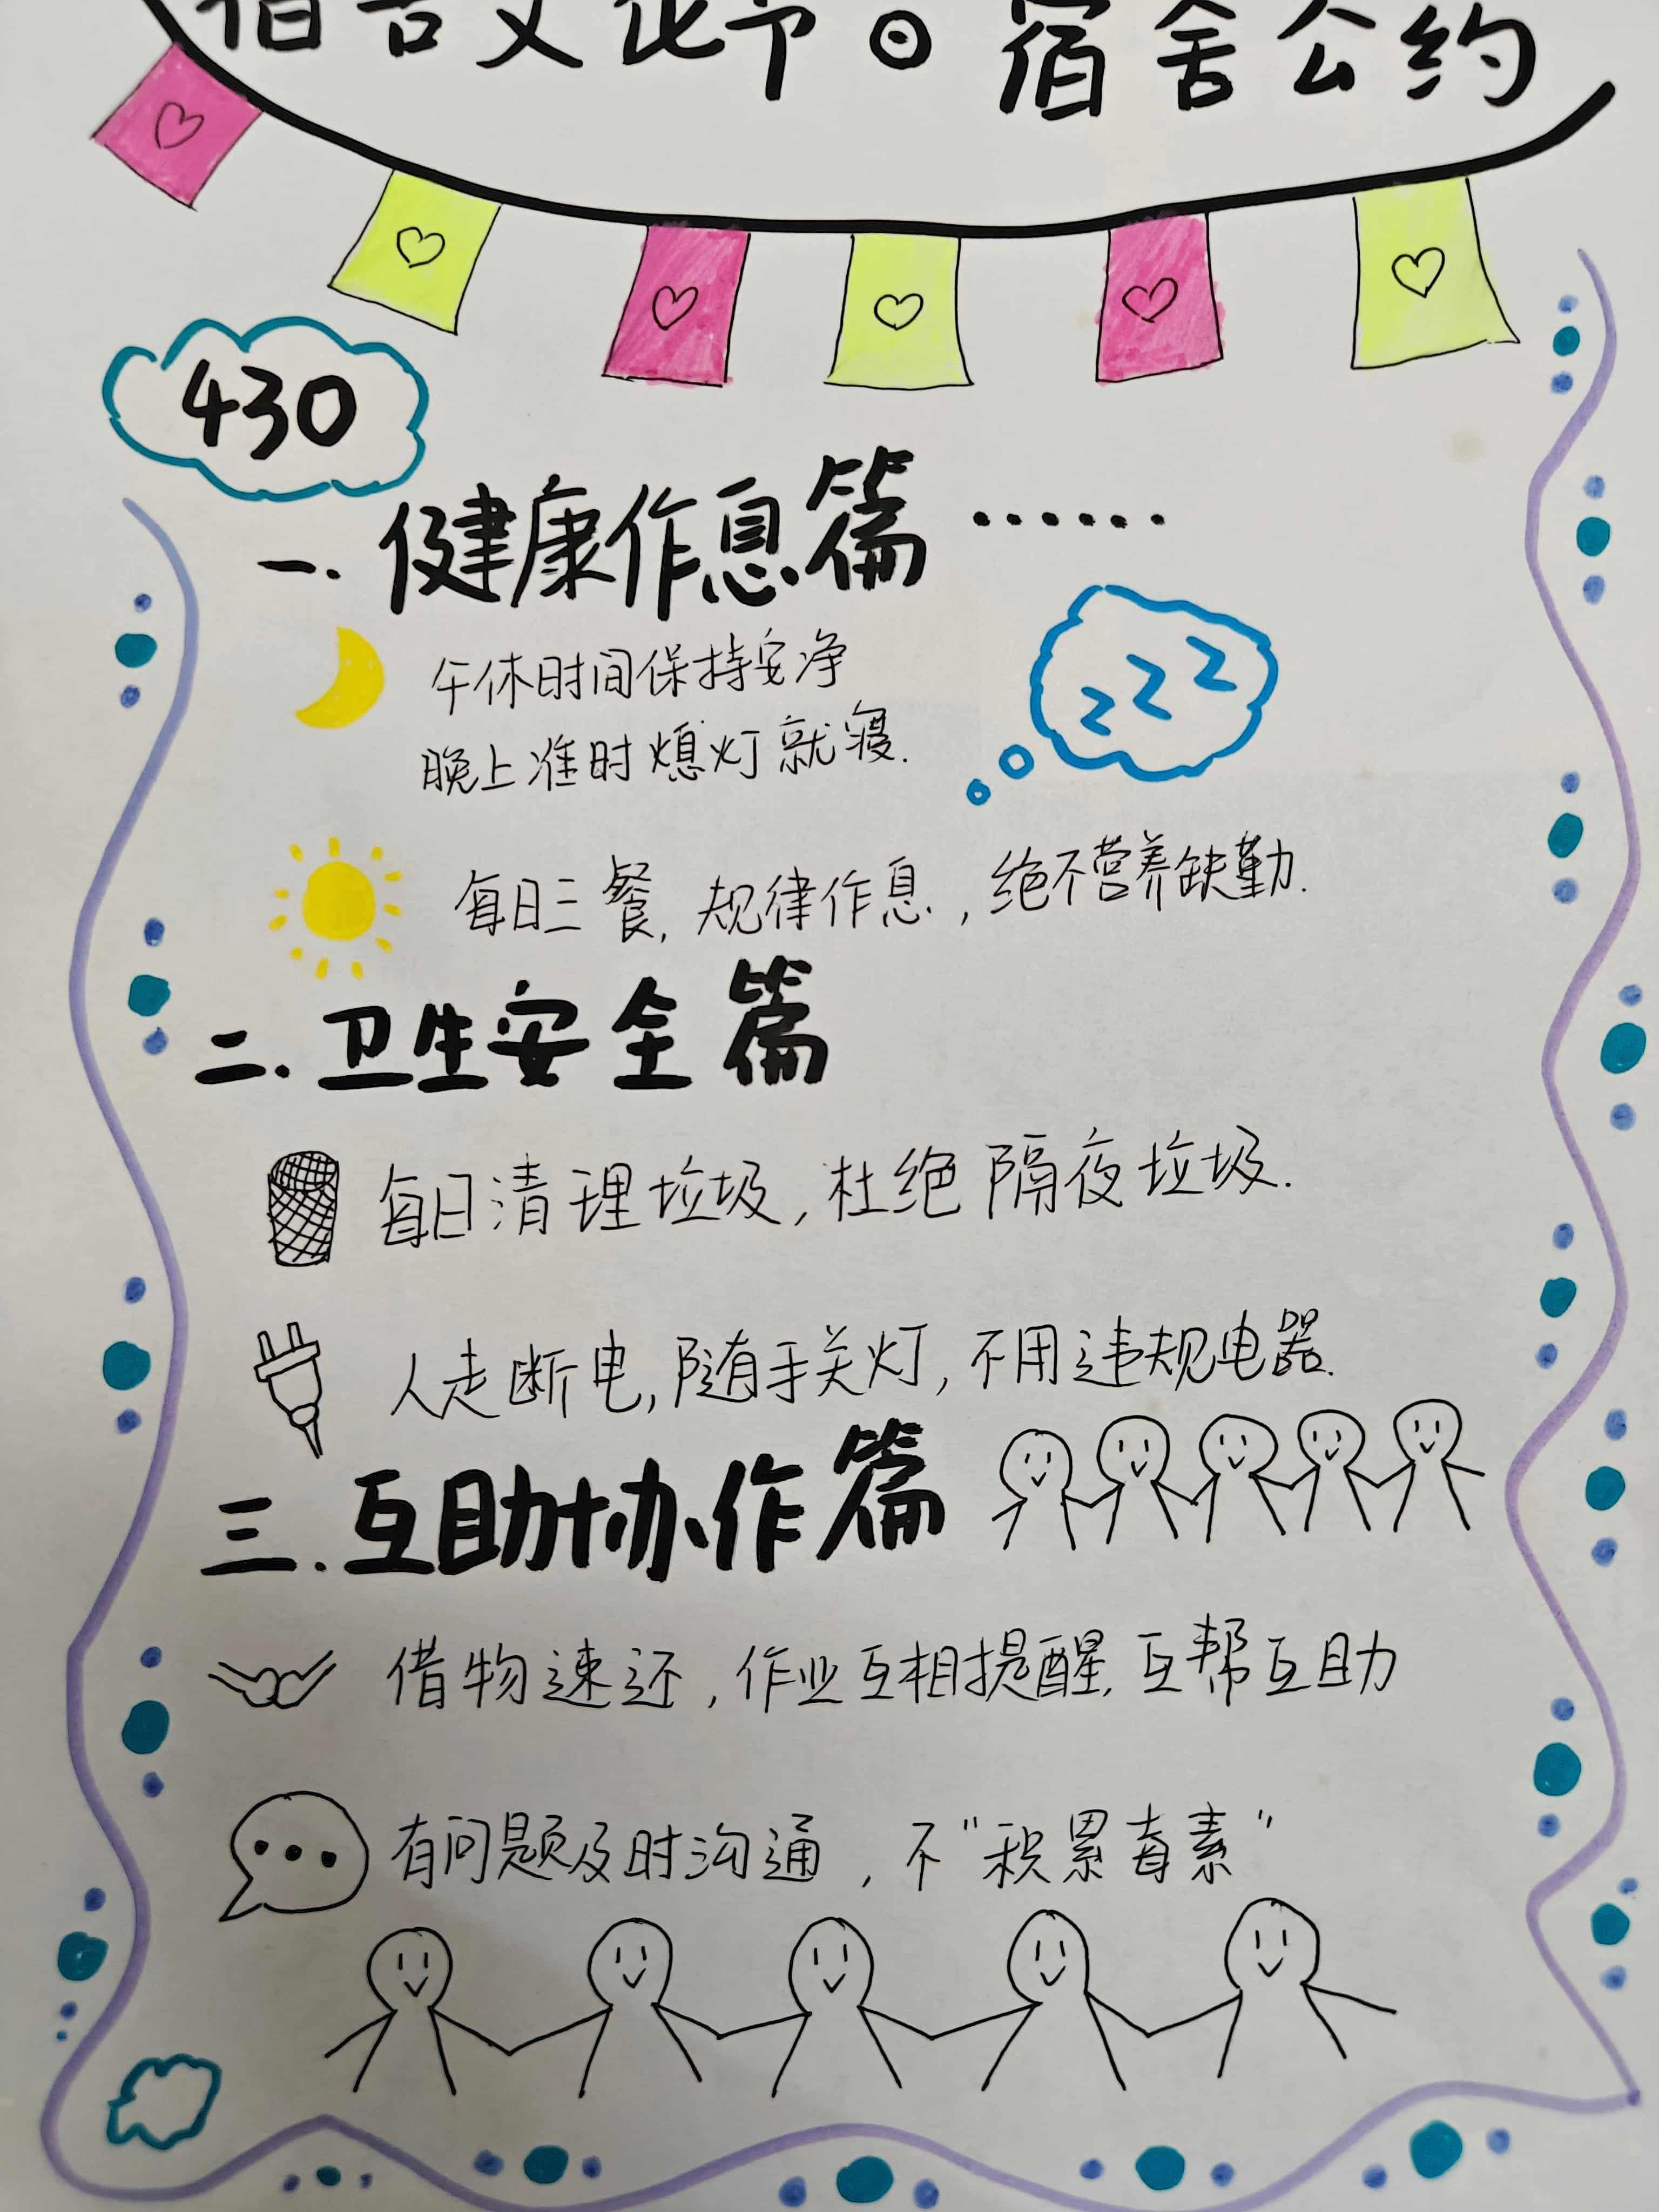 宿舍文化节⊙宿舍公约
430
一.健康作息篇······
午休时间保持安净
晚上准时熄灯就寝.
zzz
每日三餐,规律作息,绝不营养缺勤.
二.卫生安全篇
每日清理垃圾,杜绝隔夜垃圾.
人走断电,随手关灯,不用违规电器.
三.互助协作篇
借物速还,作业互相提醒,互帮互助
有问题及时沟通,不“积累毒素”